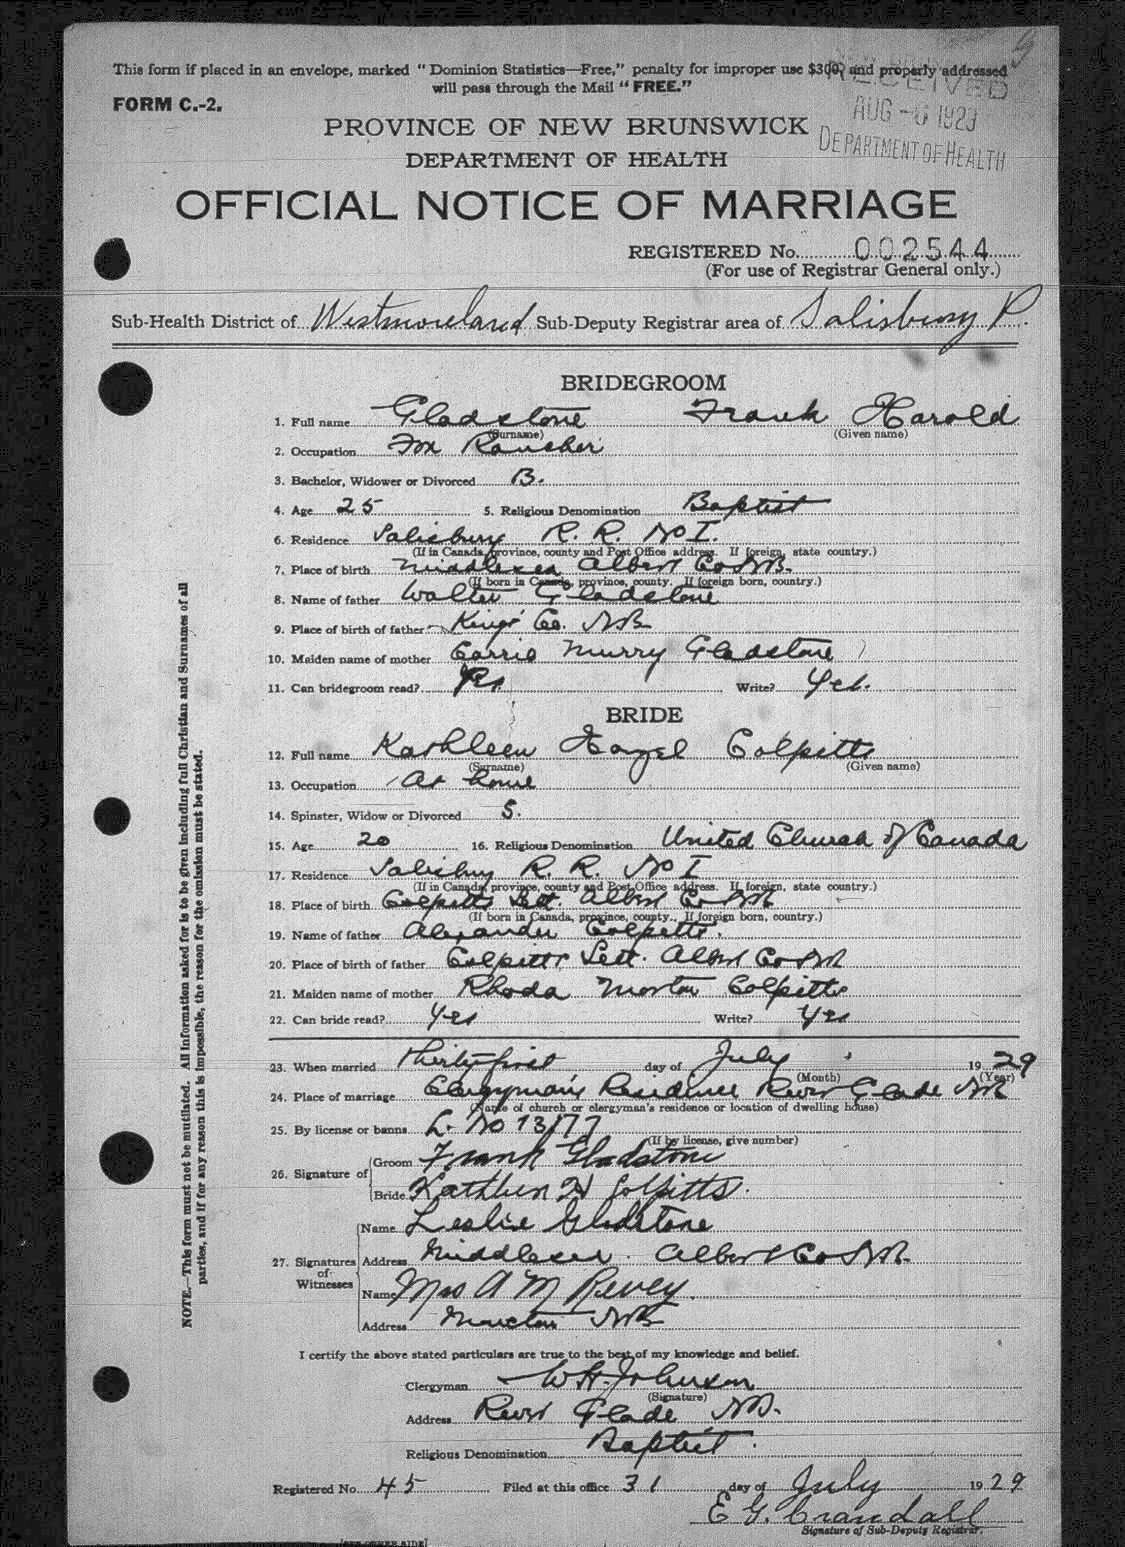 This form if placed in an envelope, marked "Dominion Statistics—Free," penalty for improper use $300, and properly addressed
will pass through the Mail "FREE."
FORM C.-2.
RECEIVED
AUG -6 1929
DEPARTMENT OF HEALTH
PROVINCE OF NEW BRUNSWICK
DEPARTMENT OF HEALTH
OFFICIAL NOTICE OF MARRIAGE
REGISTERED No. 002544
(For use of Registrar General only.)
Sub-Health District of Westmoreland Sub-Deputy Registrar area of Salisbury P.
BRIDEGROOM
1. Full name Gladstone Frank Harold
(Surname) (Given name)
2. Occupation Fox Rancher
3. Bachelor, Widower or Divorced B.
4. Age 25 5. Religious Denomination Baptist
6. Residence Salisbury R. R. No I.
(If in Canada, province, county and Post Office address. If foreign, state country.)
7. Place of birth Middlesex Albert Co NB.
(If born in Canada, province, county. If foreign born, country.)
8. Name of father Walter Gladstone
9. Place of birth of father Kings Co. NB
10. Maiden name of mother Carrie Murry Gladstone
11. Can bridegroom read? Yes. Write? Yes.
BRIDE
12. Full name Kathleen Hazel Colpitts
(Surname) (Given name)
13. Occupation At home
14. Spinster, Widow or Divorced S.
15. Age 20 16. Religious Denomination United Church of Canada
17. Residence Salisbury R. R. No I
(If in Canada, province, county and Post Office address. If foreign, state country.)
18. Place of birth Colpitts Sett. Albert Co NB
(If born in Canada, province, county. If foreign born, country.)
19. Name of father Alexander Colpitts.
20. Place of birth of father Colpitts Sett. Albert Co NB
21. Maiden name of mother Rhoda Morton Colpitts
22. Can bride read? Yes Write? Yes
23. When married Thirty first day of July 1929
(Month) (Year)
24. Place of marriage Clergyman's Residence River Glade NB
(Name of church or clergyman's residence or location of dwelling house)
25. By license or banns L. No 13177
(If by license, give number)
26. Signature of Groom Frank Gladstone
Bride Kathleen H Colpitts.
27. Signatures of Witnesses
Name Leslie Gladstone
Address Middlesex Albert Co NB.
Name Mrs A M Revey
Address Moncton NB
I certify the above stated particulars are true to the best of my knowledge and belief.
Clergyman W. H. Johnson
(Signature)
Address River Glade NB.
Religious Denomination Baptist.
Registered No. 45 Filed at this office 31 day of July 1929
E G. Crandall
Signature of Sub-Deputy Registrar.
NOTE.—This form must not be mutilated. All information asked for is to be given including full Christian and Surnames of all
parties, and if for any reason this is impossible, the reason for the omission must be stated.